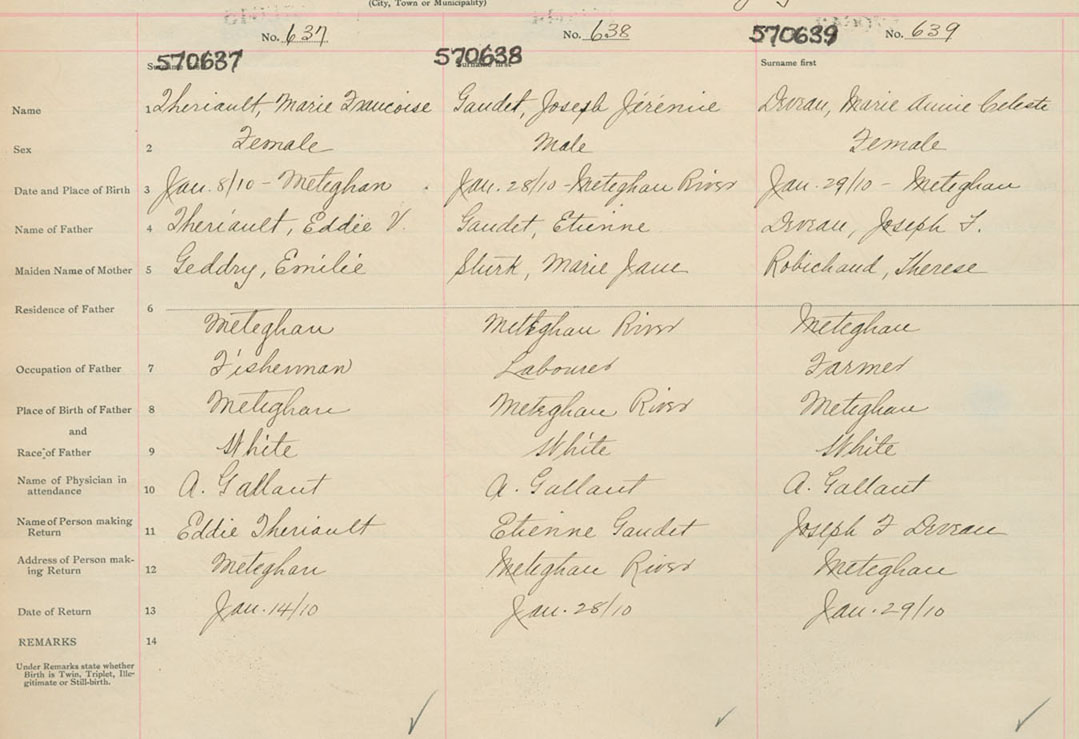 (City, Town or Municipality)
No. 637 No. 638 No. 639
570637 570638 570639
Surname first Surname first Surname first
Name 1 Theriault, Marie Francoise Gaudet, Joseph Jérémie Deveau, Marie Annie Celeste
Sex 2 Female Male Female
Date and Place of Birth 3 Jan. 8/10 - Meteghan Jan. 28/10 - Meteghan River Jan. 29/10 - Meteghan
Name of Father 4 Theriault, Eddie V. Gaudet, Etienne Deveau, Joseph F.
Maiden Name of Mother 5 Geddry, Emilie Sturk, Marie Jane Robichaud, Therese
Residence of Father 6 Meteghan Meteghan River Meteghan
Occupation of Father 7 Fisherman Labourer Farmer
Place of Birth of Father 8 Meteghan Meteghan River Meteghan
and
Race of Father 9 White White White
Name of Physician in
attendance 10 A. Gallant A. Gallant A. Gallant
Name of Person making
Return 11 Eddie Theriault Etienne Gaudet Joseph F Deveau
Address of Person mak-
ing Return 12 Meteghan Meteghan River Meteghan
Date of Return 13 Jan. 14/10 Jan. 28/10 Jan. 29/10
REMARKS 14
Under Remarks state whether
Birth is Twin, Triplet, Ille-
gitimate or Still-birth.